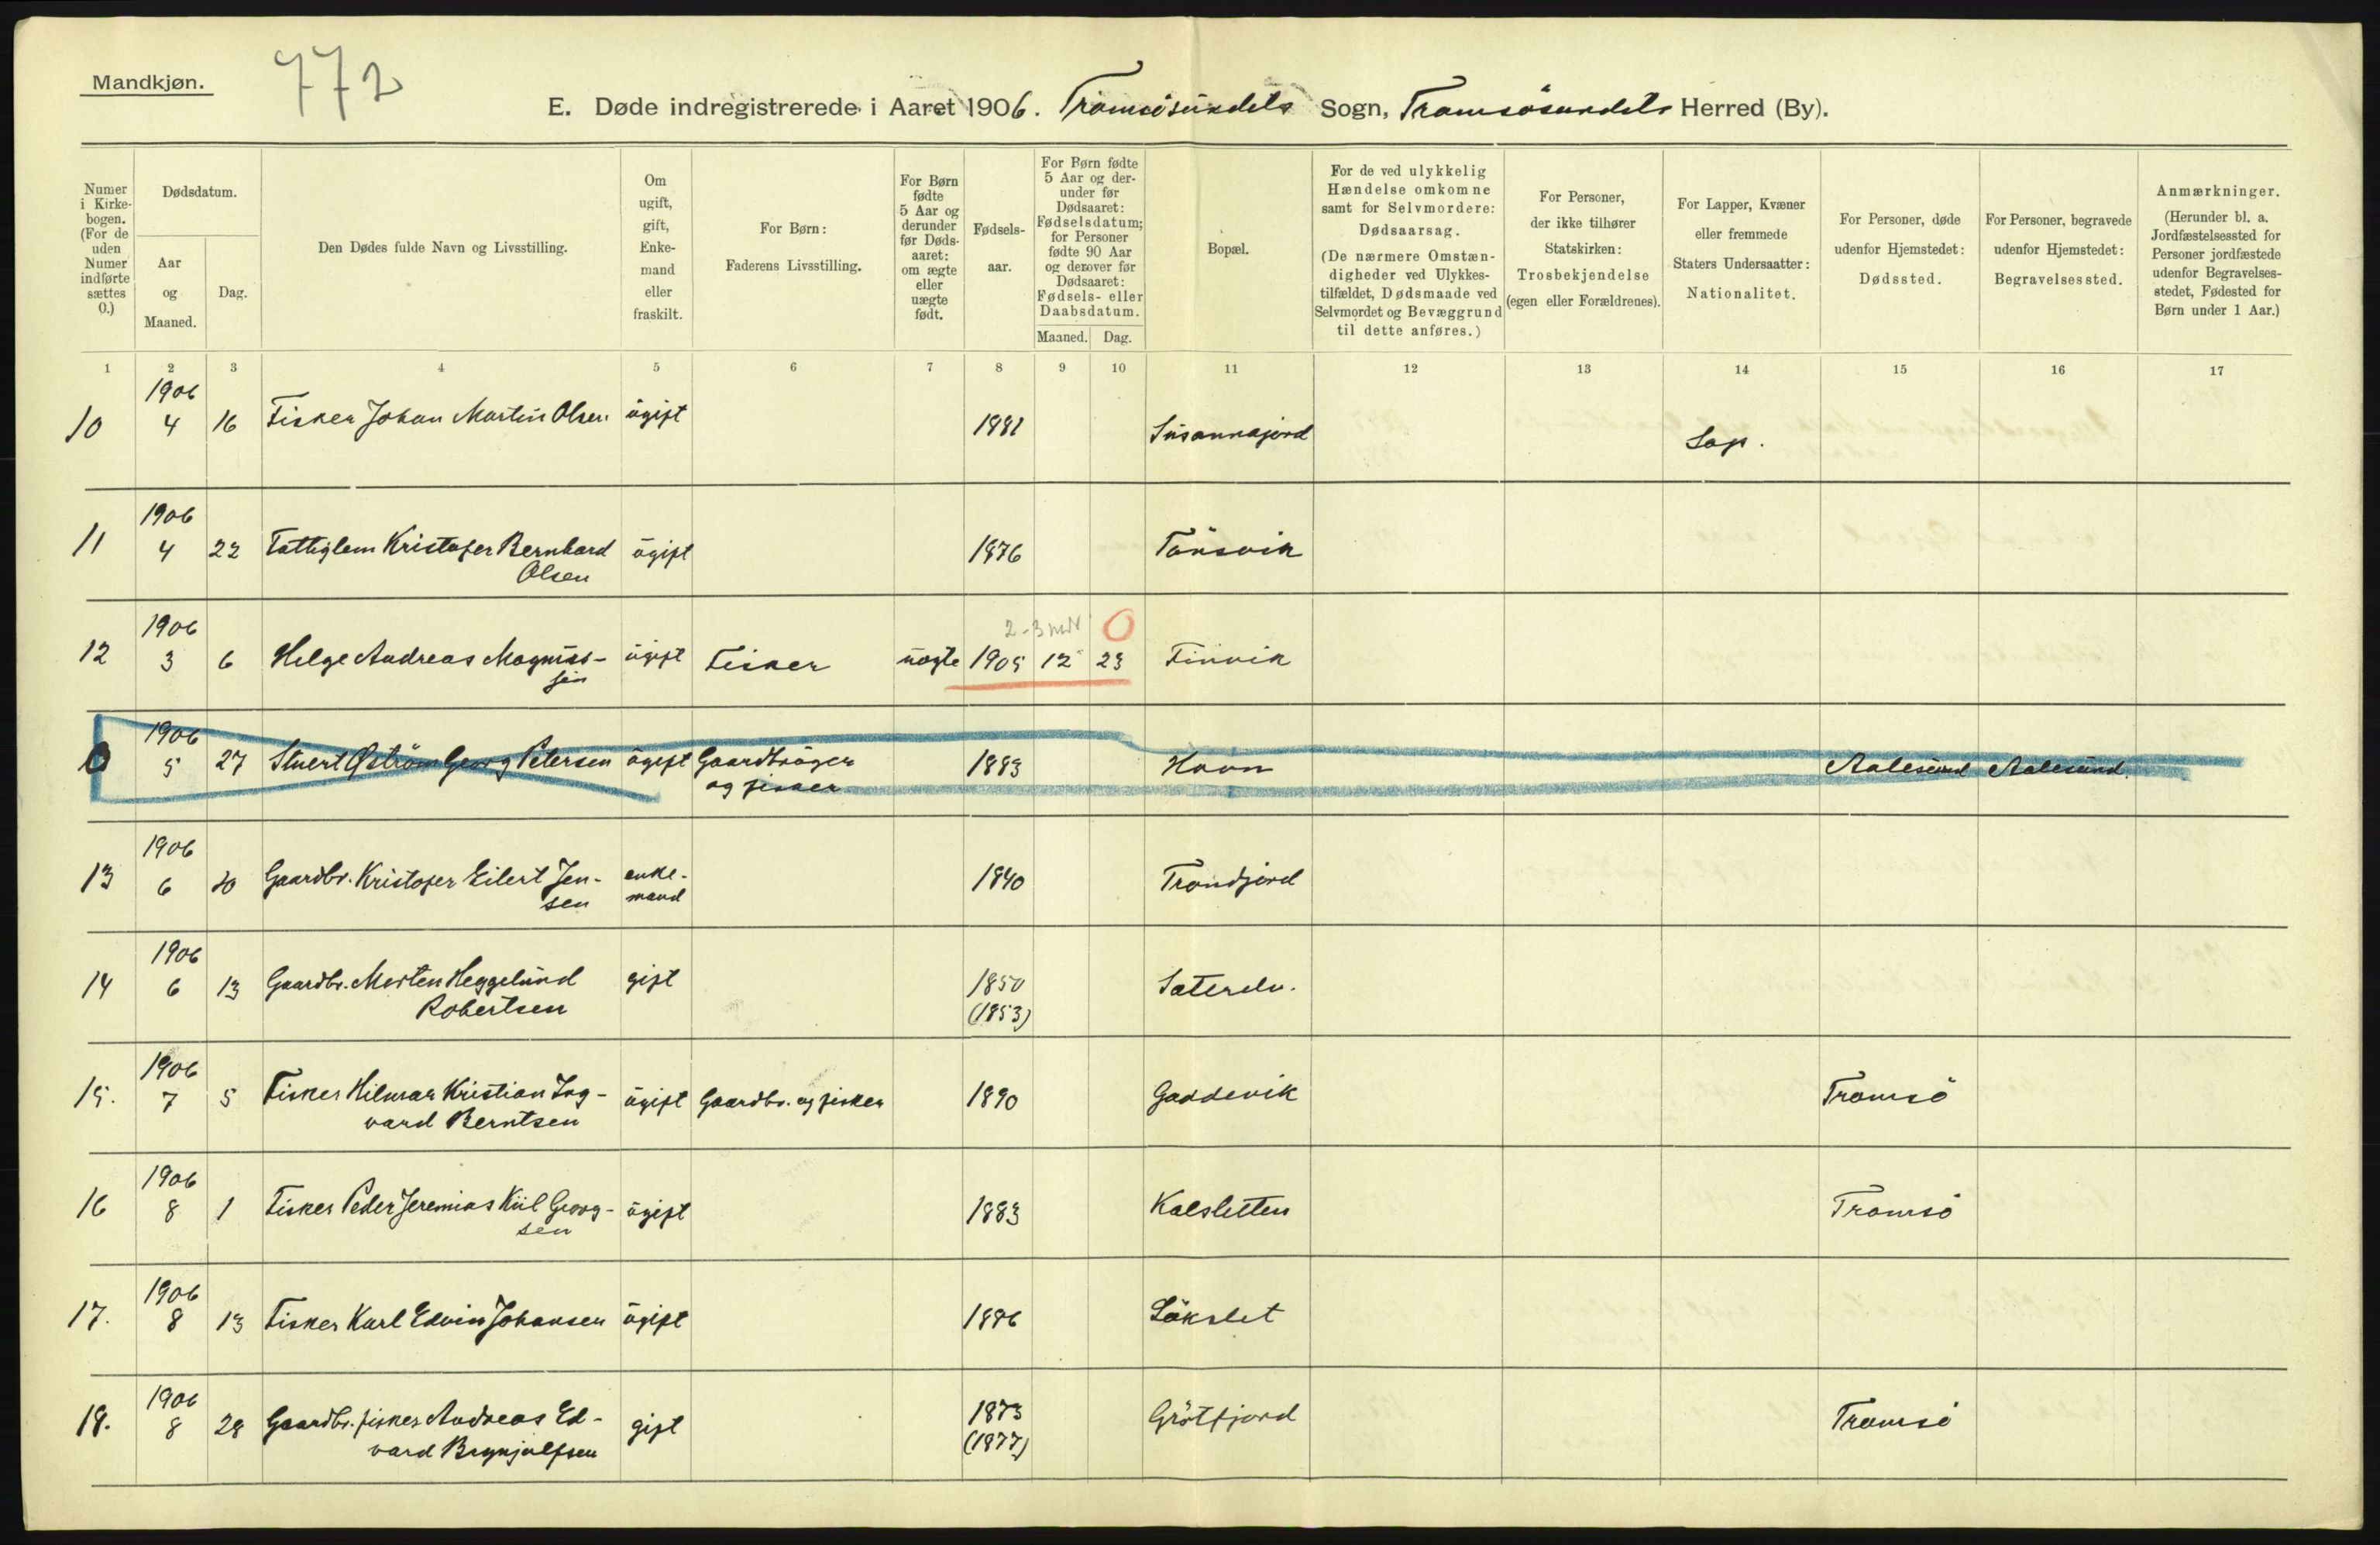 Mandkjøn.
772
E. Døde indregistrerede i Aaret 1906. Tromsøsundets Sogn, Tromsøsundets Herred (By).
Numer i Kirke-bogen. (For de uden Numer indførte sættes 0.)
Dødsdatum.
Aar og Maaned.
Dag.
Den Dødes fulde Navn og Livsstilling.
Om ugift, gift, Enke-mand eller fraskilt.
For Børn: Faderens Livsstilling.
For Børn fødte 5 Aar og derunder før Døds-aaret: om ægte eller uægte født.
Fødsels-aar.
For Børn fødte 5 Aar og der-under før Dødsaaret: Fødselsdatum; for Personer fødte 90 Aar og derover før Dødsaaret: Fødsels- eller Daabsdatum.
Maaned. Dag.
Bopæl.
For de ved ulykkelig Hændelse omkomne samt for Selvmordere: Dødsaarsag. (De nærmere Omstæn-digheder ved Ulykkes-tilfældet, Dødsmaade ved Selvmordet og Bevæggrund til dette anføres.)
For Personer, der ikke tilhører Statskirken: Trosbekjendelse (egen eller Forældrenes).
For Lapper, Kvæner eller fremmede Staters Undersaatter: Nationalitet.
For Personer, døde udenfor Hjemstedet: Dødssted.
For Personer, begravede udenfor Hjemstedet: Begravelsessted.
Anmærkninger. (Herunder bl. a. Jordfæstelsessted for Personer jordfæstede udenfor Begravelses-stedet, Fødested for Børn under 1 Aar.)
1 2 3 4 5 6 7 8 9 10 11 12 13 14 15 16 17
1906
10 4 16 Fisker Johan Martin Olsen ugift 1881 Susannajord Lap.
1906
11 4 22 Fattiglem Kristofer Bernhard ugift 1876 Tønsvik
Olsen
1906 2-3 mdr 0
12 3 6 Helge Andreas Magnus- ugift Fisker uægte 1905 12 23 Finvik
sen
1906
0 5 27 Stuert Øström Georg Petersen ugift Gaardbruger 1883 Havn Aalesund Aalesund.
og fisker
1906
13 6 20 Gaardbr. Kristofer Eilert Jen- enke- 1840 Trondjord
sen mand
1906
14 6 13 Gaardbr. Morten Heggelund gift 1850
Robertsen (1853)
1906
15. 7 5 Fisker Hilmar Kristian Ing- ugift Gaardbr. og fisker 1890 Gaddevik Tromsø
vard Berntsen
1906
16 8 1 Fisker Peder Jeremias Kiil Georg- ugift 1883 Kalsletten Tromsö
sen
1906
17. 8 13 Fisker Karl Edvin Johansen ugift 1886 Lökslet
1906
18. 8 28 Gaardbr. fisker Andreas Ed- gift 1873 Grötfjord Tromsö
vard Brynjulfsen (1877)